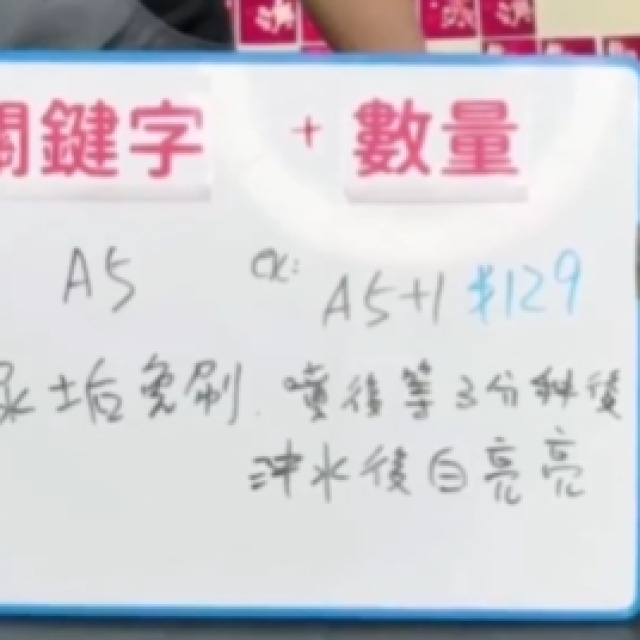 關鍵字 + 數量
A5 ex: A5+1 $129
尿垢免刷. 噴後等3分鐘後
沖水後白亮亮